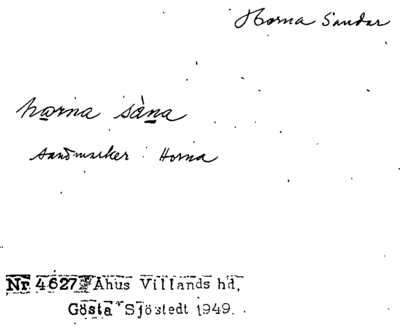 Horna Sandar
horna sàna
sandmarker i Horna
Nr 4627 Åhus Villands hd,
Gösta Sjöstedt 1949.